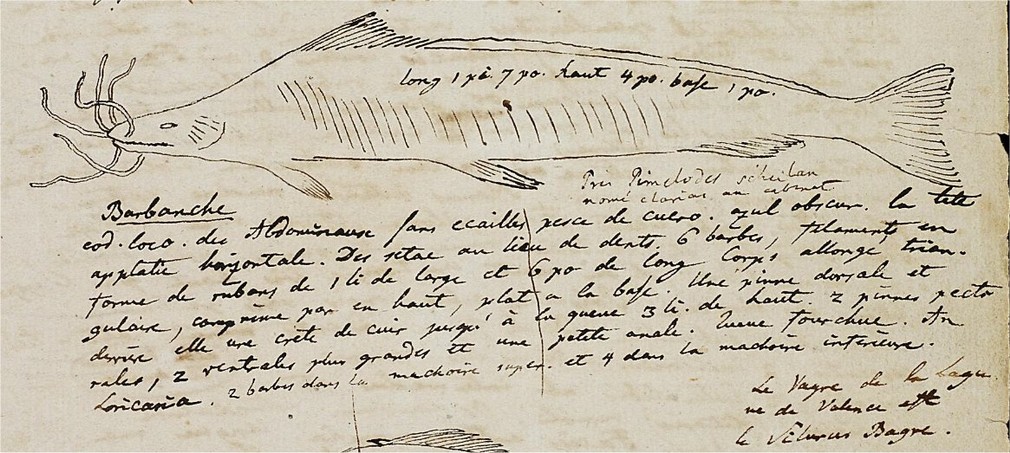 long 1 pi. 7 po. haut 4 po. base 1 po.
Pris Pimelodes scheilan
nomé clarias au cabinet
Barbanche
eod. loco. des Abdominaux sans ecailles pesce de cuero. azul obscur. la tete
applatie horizontale. Des setae au lieu de dents. 6 barbes, filaments en
forme de rubans de 1 li de large et 6 po de long Corps allongé trian-
gulaire, comprimé par en haut, plat a la base. Une pinne dorsale et
derriere elle une crète de cuir jusqu'à la queue 3 li. de haut. 2 pinnes pecto
rales, 2 ventrales plus grandes et une petite anale. Queue fourchue. An
Loricaria. 2 barbes dans la machoire super. et 4 dans la machoire inferieure.
Le Vagre de la Lagu
ne de Valence est
le Silurus Bagre.